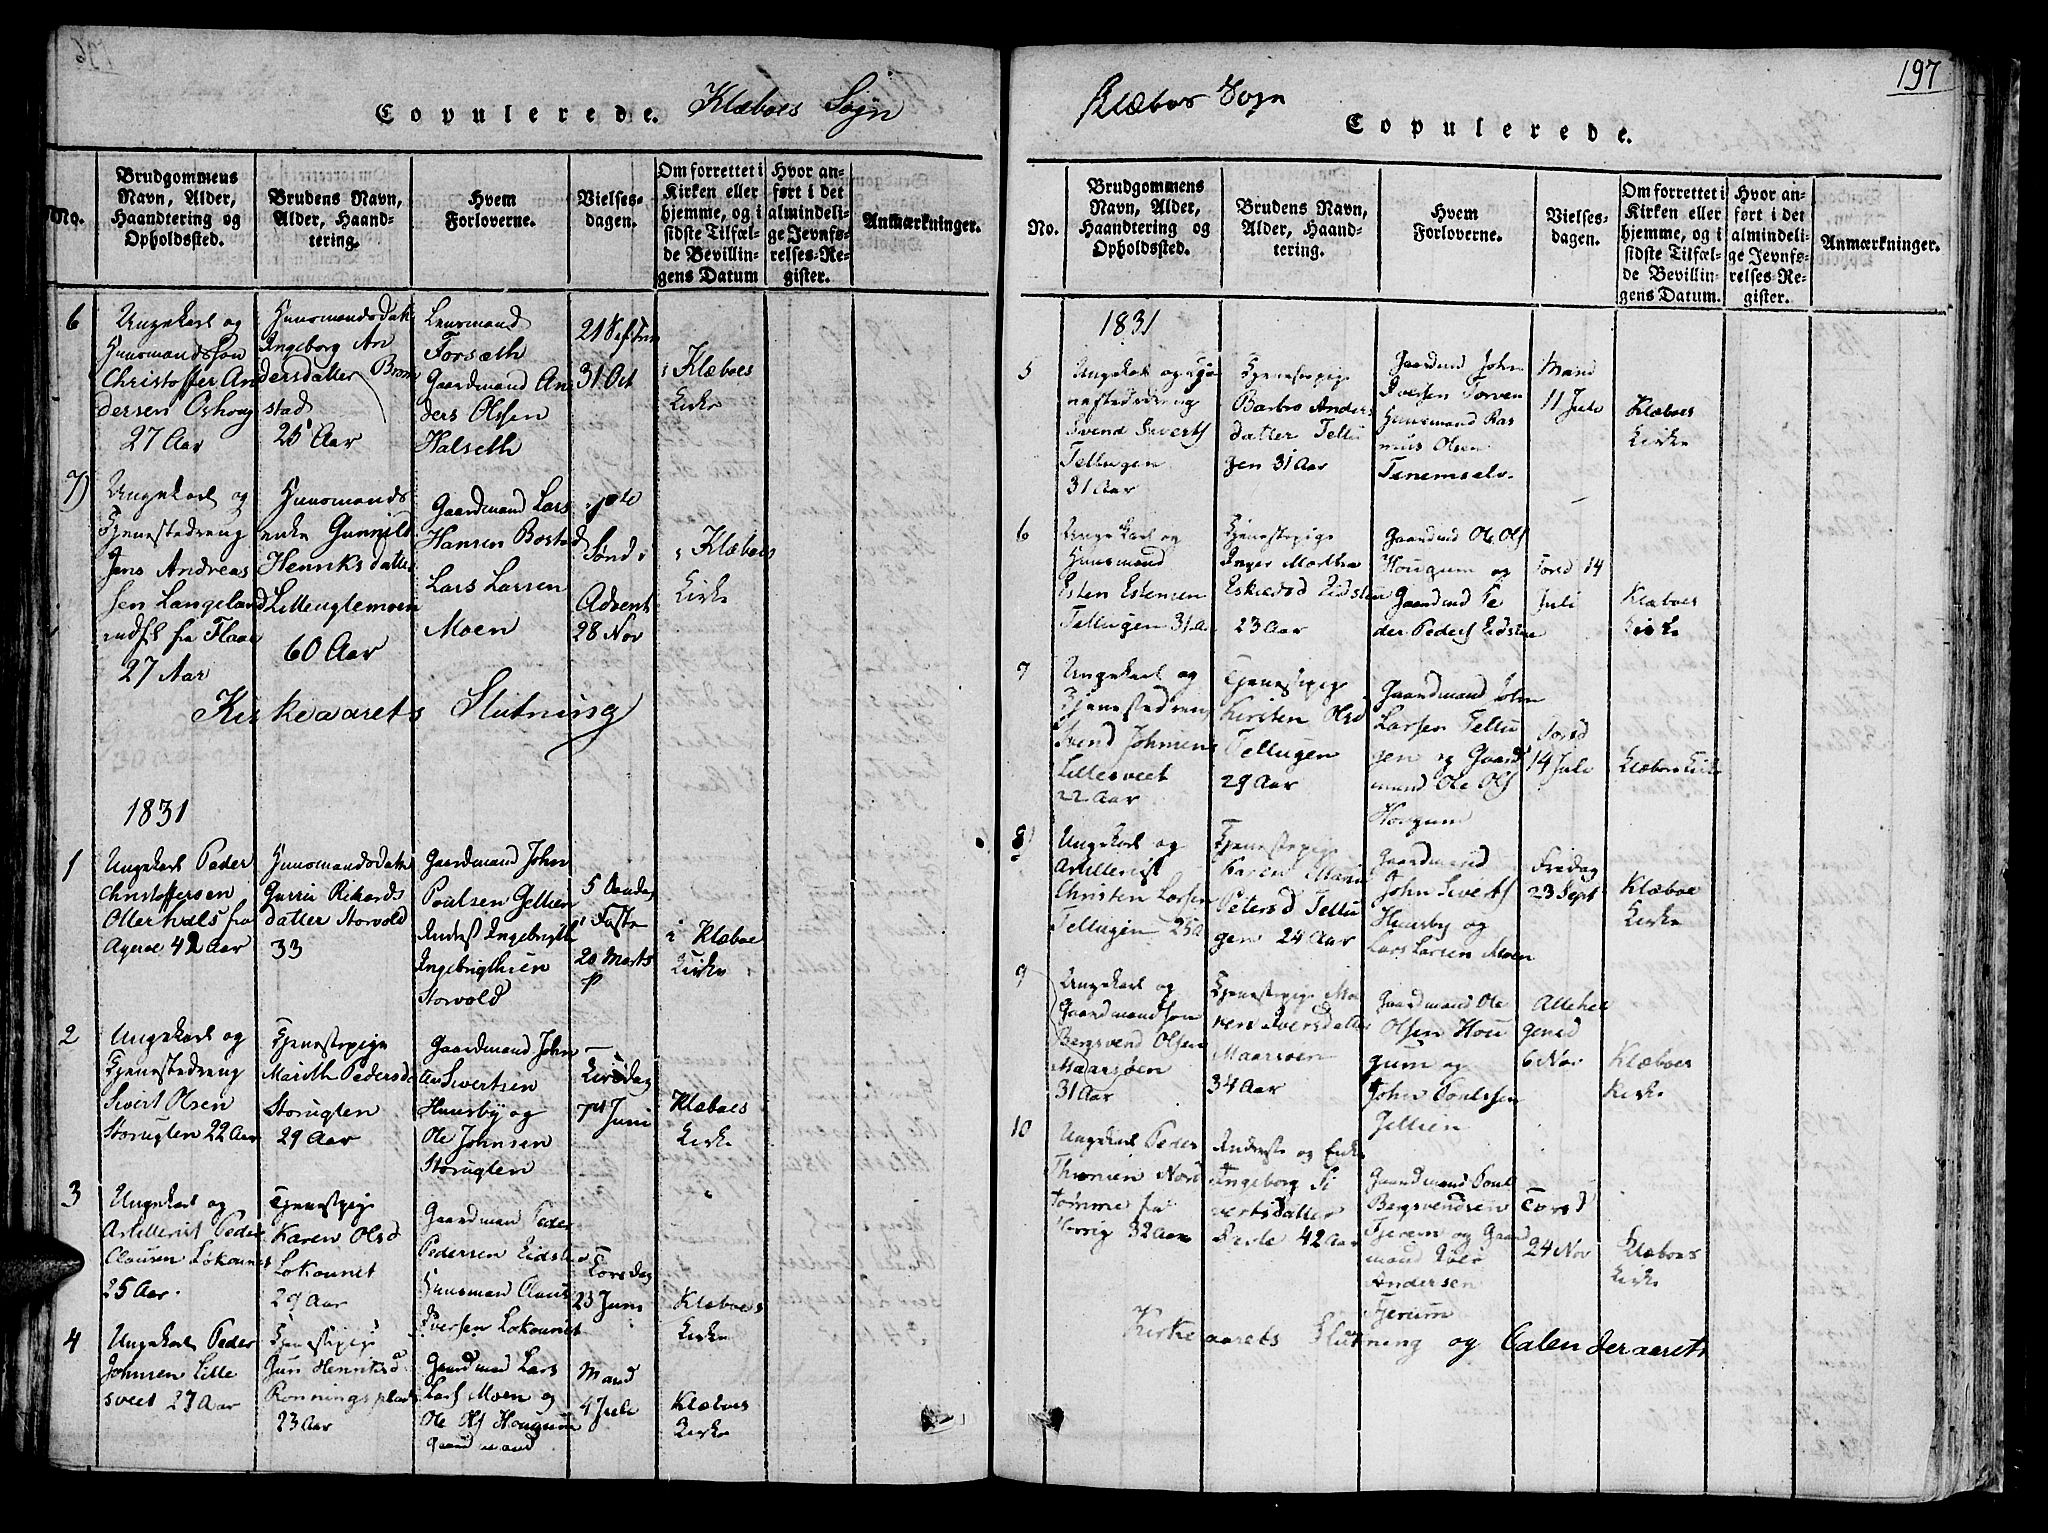 Copulerede. Klæboes Sogn
No.
Brudgommens
Navn, Alder,
Haandtering og
Opholdssted.
Brudens Navn,
Alder, Haand-
tering.
Hvem
Forloverne.
Vielses-
dagen.
Om forrettet i
Kirken eller
hjemme, og i
sidste Tilfæl-
de Bevillin-
gens Datum
Hvor an-
ført i det
almindeli-
ge Jevnfø-
relses-Re-
gister.
Anmærkninger.
6
Ungekarl og
Huusmandssøn
Christoffer An
dersen Oshoug
27 Aar
Huusmandsdat
Ingeborg An
dersdatter
stad
25 Aar
Lensmand
Forsæth
Gaardmand An
ders Olssen
Halseth
31 Oct
i Klæboes
Kirke
7)
Ungekarl og
Tjenestedreng
Jens Andreas
sen Langeland
fra Flaae
27 Aar
Huusmands
enke Gunnild
Henriksdatter
Lilleuglemoen
60 Aar
Gaardmand Lars
Hansen Bostad
Lars Larsen
Moen
Sønd i
Advent
28 Nov
i Klæboes
Kirke
Kirkeaarets Slutning
1831
1
Ungekarl Peder
Christoffersen
Otterhals fra
Ageroe 42 Aar
Huusmandsdatt
Gurrie Rekords
datter Storvold
33
Gaardmand John
Poulsen Gellien
Inderst Ingebrigth
Ingebrigthsen
Storvold
5 Søndag
i Faste
20 Marts
i Klæboe
Kirke
2
Ungekarl og
Tjenestedreng
Sivert Olsen
Storuglen 22 Aar
Tjenestepige
Marith Pedersd
Storuglen
29 Aar
Gaardmand John
Sivertsen
Huusby og
Ole Johnsen
Storuglen
Tirsdag
7de Juni
Klæboes
Kirke
3
Ungekarl og
Artillerist Peder
Clausen Lokaunet
25 Aar.
Tjenestepige
Karen Olsd
Lokaunet
29 Aar
Gaardman Peder
Pedersen Eidstu
Huusman Claus
Iversen Lokaunet
Torsdag
23 Juni
Klæboes
Kirke
4
Ungekarl Peder
Johnsen Lille
sveet 27 Aar
Tjenestepige
Gun Henriksd
Rønningsplads
23 Aar
Gaardmand Lars
Lars Moen og
Ole Ols Hougum
gaardmand
Mand
4 Juli
Klæboes
Kirke
197
Klæboes Sogn
Copulerede.
No.
Brudgommens
Navn, Alder,
Haandtering og
Opholdssted.
Brudens Navn,
Alder, Haand-
tering.
Hvem
Forloverne.
Vielses-
dagen.
Om forrettet i
Kirken eller
hjemme, og i
sidste Tilfæl-
de Bevillin-
gens Datum.
Hvor an-
ført i det
almindeli-
ge Jevnfø-
relses-Re-
gister.
Anmærkninger.
1831
5
Ungekarl og Tje
nestedreng
Svend Siverts
Tellugen
31 Aar
Tjenestepige
Barbro Anders
datter Tellu
gen 31 Aar
Gaardmd John
Iversen Torven
Huusmand Ras
mus Olsen
Tenemselv.
Mand
11 Julo
Klæboes
Kirke
6
Ungekarl og
Huusmand
Esten Estensen
Tellugen 31 A
Tjenestepige
Inger Martha
Eskedsd Eidstuen
23 Aar
Gaardmd Ole Ols
Hougum og
Gaardmd Pe
der Peders Eidstue
Torsd 14
Juli
Klæboes
Kirke
7
Ungekarl og
Tjenestedreng
Svend Johnsen
Lillesveet
22 Aar
Tjenestepige
Kirsten Olsd
Tellugen
29 Aar
Gaardmand John
Larsen Tellu
gen og Gaard
mand Ole Ols
Hougum
Torsd
14 Juli
Klæboes Kirke
8)
Ungekarl og
Artillerist
Christen Larsen
Tellugen 25 A
Tjenestepige
Karen
Petersd Tellu
gen 24 Aar
Gaardmand
John Siverts
Huusby og
Lars Larsen Moen
Fredag
23 Sept
Klæboe
Kirke
9
Ungekarl og
Gaardmandssøn
Bergsvend Olsen
Maarsøen
31 Aar
Tjenestepige Ma
ren Iversdatter
Maarsøen
34 Aar
Gaardmand Ole
Olsen Hou
gum og
John Poulssen
Jellien
Allehel
gensd
6 Nov
Klæboes
Kirke
10
Ungekarl Peder
Thomsen Nord
tømme fra
Horrig 32 Aar
Inderste og Enke
Ingeborg Si
vertsdatter
42 Aar
Gaardmand Poul
Bergsvendsen
Tjerem og Gaard
mand Iver
Andersen
Tjerum
Torsd
24 Nov
Klæboes
Kirke
Kirkeaarets Slutning og Calenderaarets